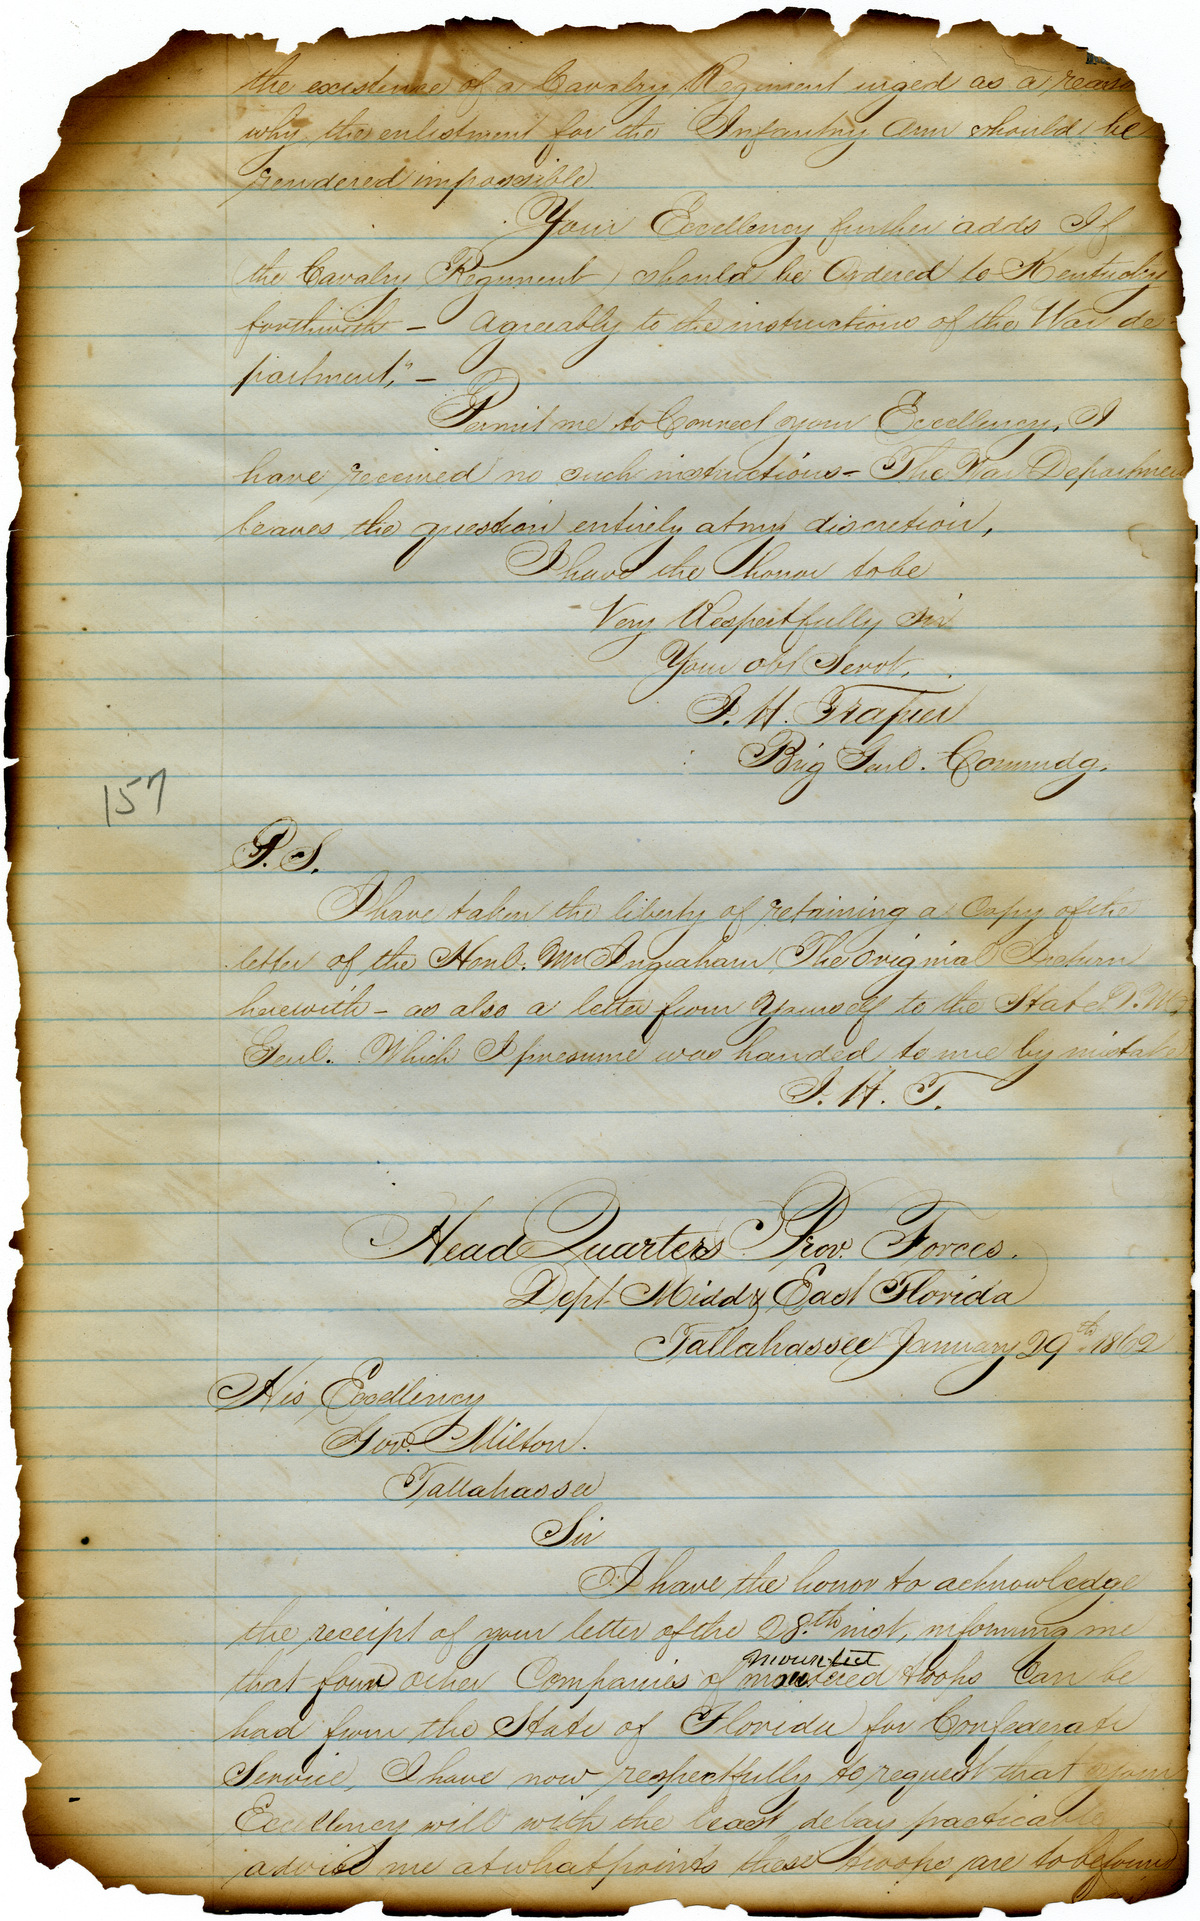 the existence of a Cavalry Regiment urged as a reason
why the enlistment for the Infantry Arm should be
rendered impossible
Your Excellency further adds If
the Cavalry Regiment, should be Ordered to Kentucky
forthwith – agreeably to the instructions of the War de-
partment," –
Permit me to Correct your Excellency, I
have received no such instructions – The War Department
leaves the question entirely at my discretion,
I have the honor to be
Very Respectfully Sir
Your obt Servt.
J. H. Trapier
Brig Genl. Commdg.
157
P. S.
I have taken the liberty of retaining a Copy of the
letter of the Honl. Mr Ingraham, The original I return
herewith – as also a letter from Yourself to the State
Genl. Which I presume was handed to me by mistake
J. H. T.
Head Quarters Prov. Forces.
Dept Midd & East Florida
Tallahassee January 29th 1862
His Excellency
Gov. Milton.
Tallahassee
Sir
I have the honor to acknowledge
the receipt of your letter of the 28th inst, informing me
mounted
that four other Companies of troops Can be
had from the State of Florida for Confederate
Service, I have now respectfully to request that your
Excellency will with the least delay practicable
advise me at what points these troops are to be found